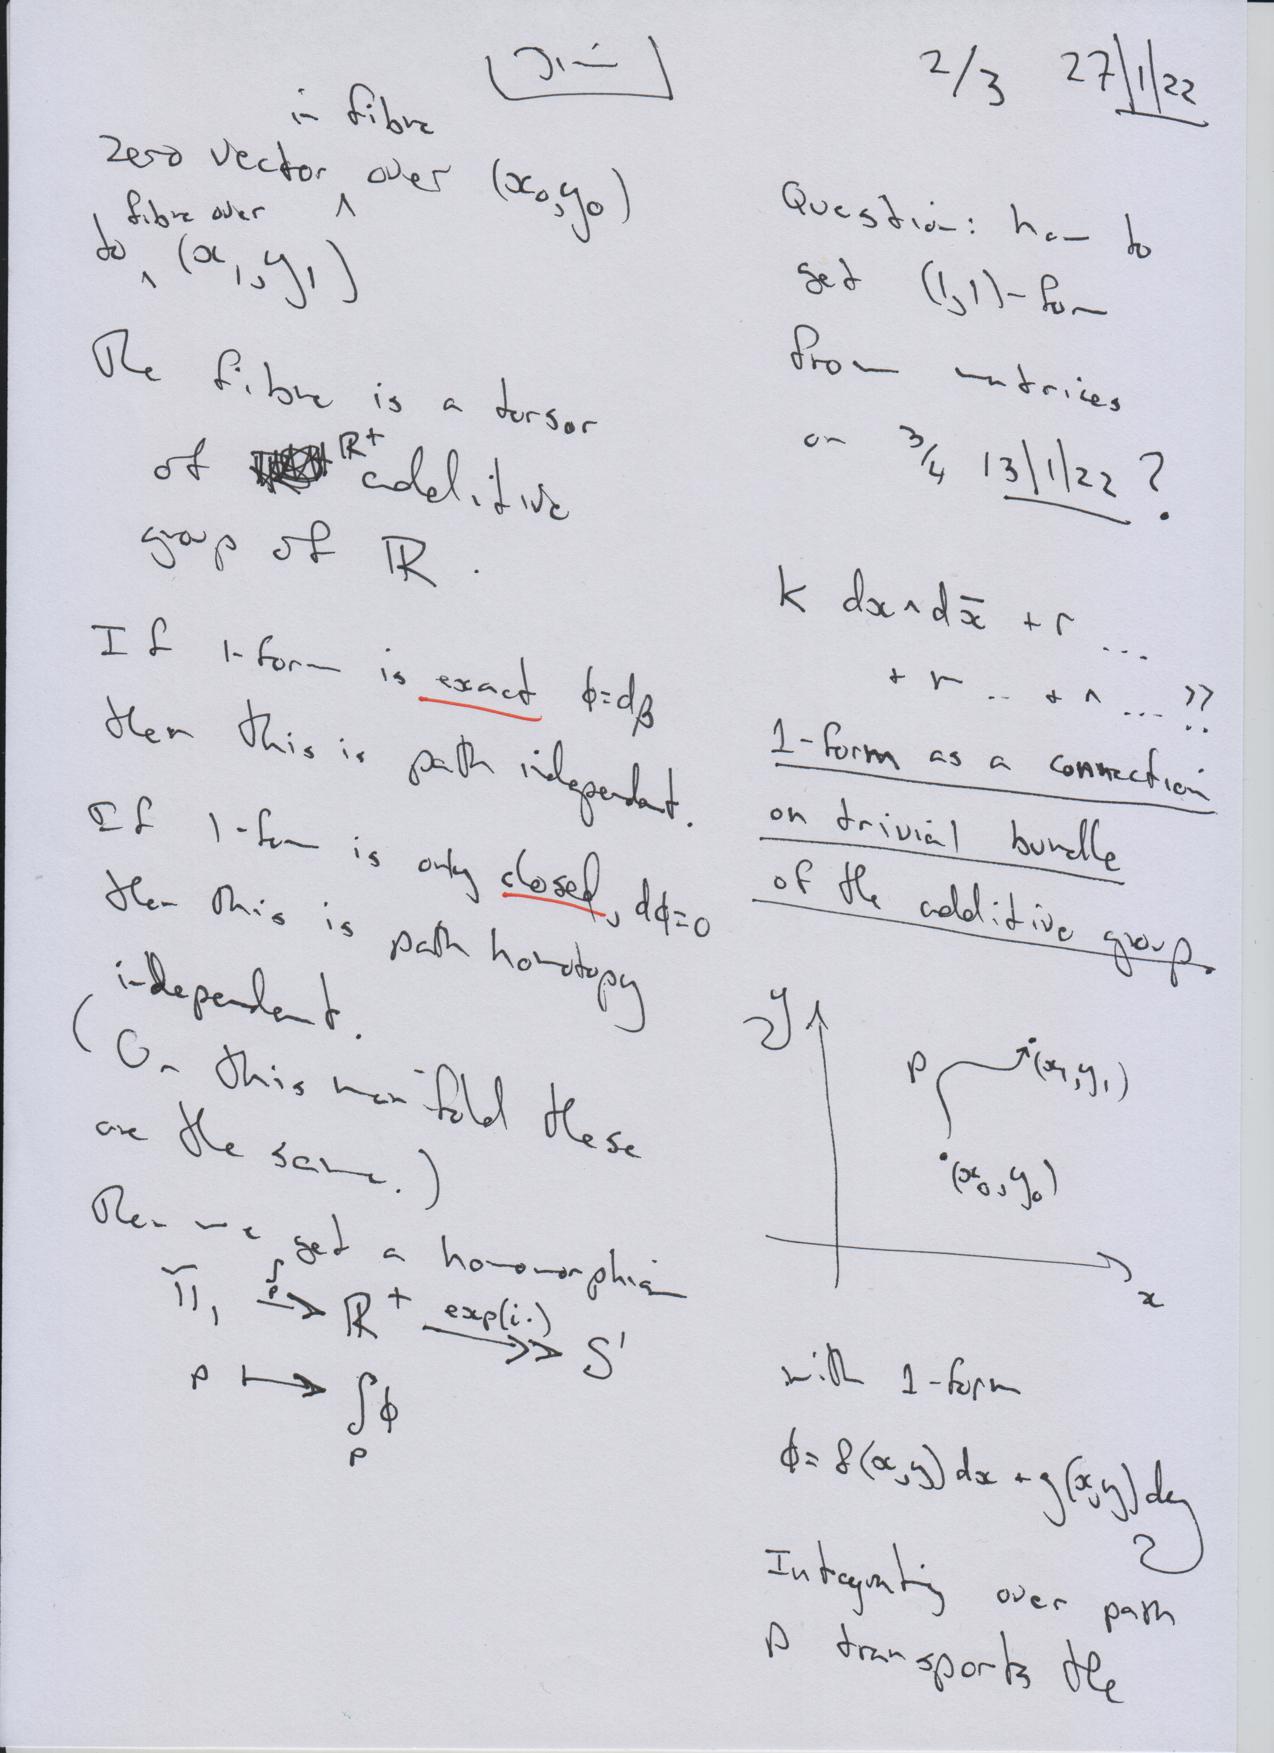 2/3 27/1/22
Question: how to
get (1,1)-form
from matrices
on 3/4 13/1/22 ?
K dx∧dx̄ + r ...
+ r .. + ∧ ... ??
1-form as a connection
on trivial bundle
of the additive group.
y
p (x₁,y₁)
(x₀,y₀)
x
with 1-form
ϕ= f(x,y)dx + g(x,y)dy
Integrating over path
p transports the
in fibre
zero vector ∧ over (x₀,y₀)
fibre over
to ∧ (x₁,y₁)
The fibre is a torsor
of ℝ⁺ additive
group of ℝ.
If 1-form is exact ϕ=dβ
then this is path independent.
If 1-form is only closed, dϕ=0
then this is path homotopy
independent.
(On this manifold these
are the same.)
Then we get a homomorphism
π₁ →∫ₚ ℝ⁺ →exp(i·) S¹
p ↦ ∫ₚ ϕ